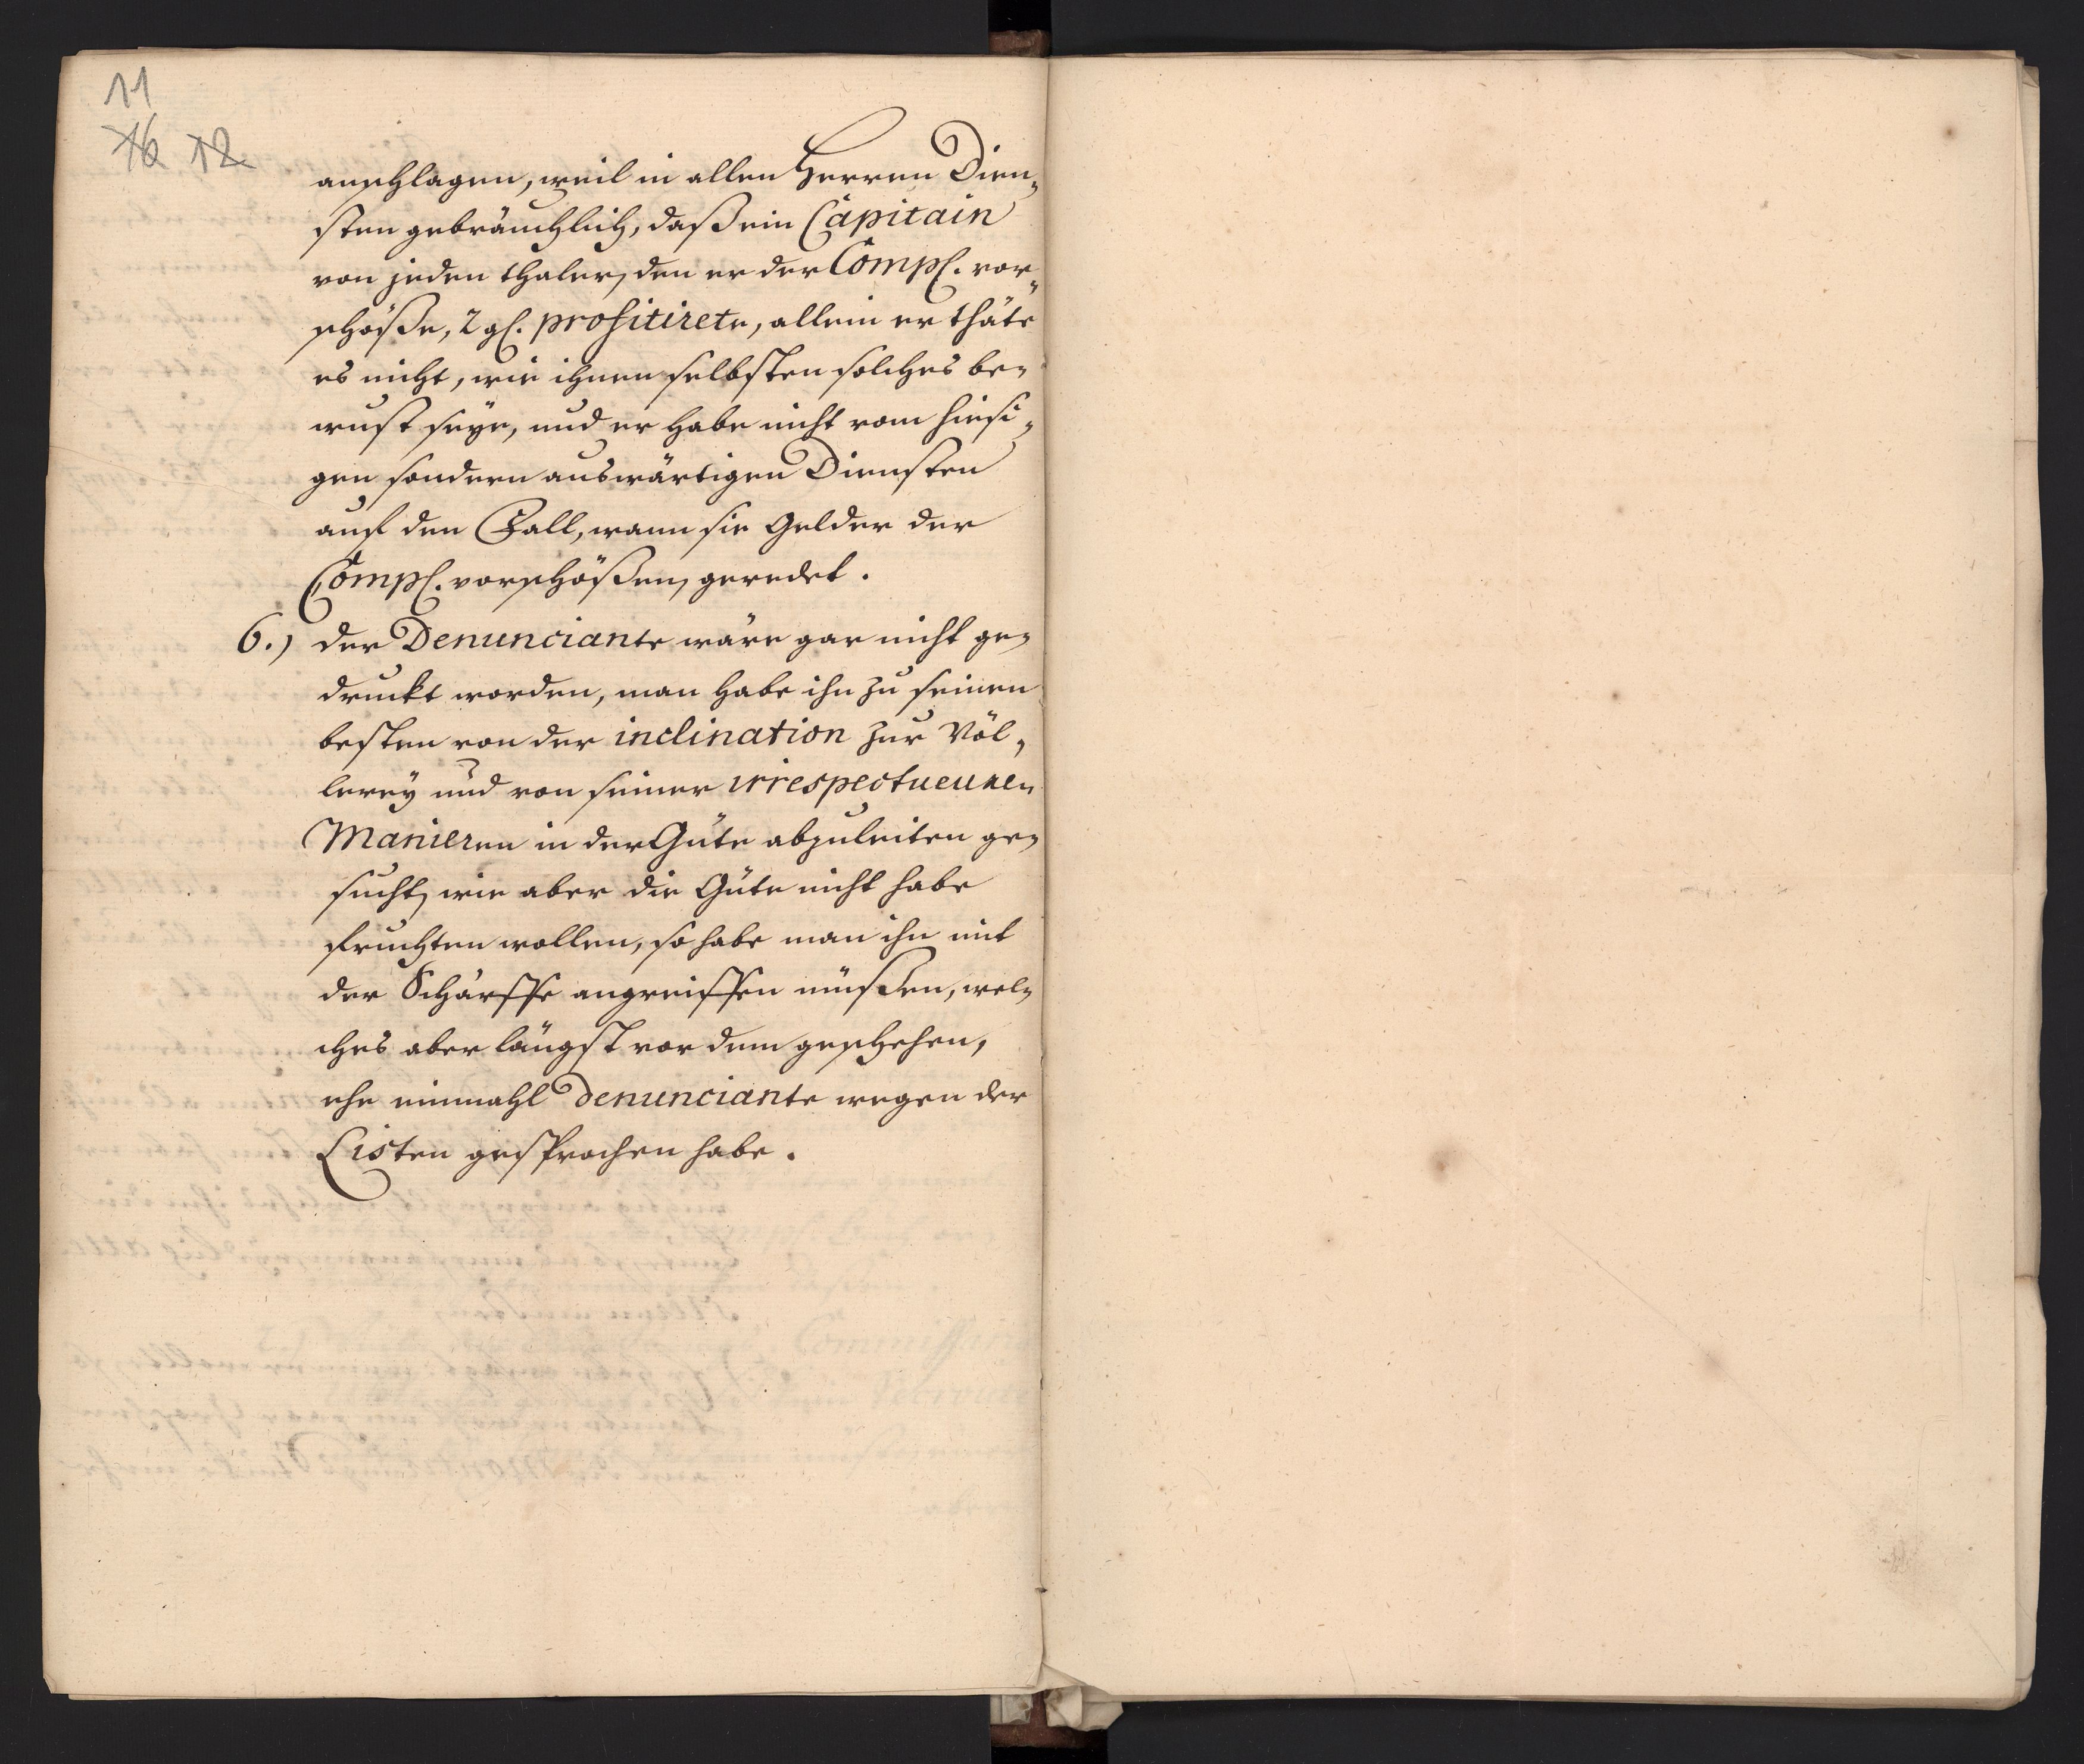 11
16 12
anschlagen, weil in allen Herren Dien„
sten gebräuchlich, daß ein Capitain
von jeden thaler, den er der Comp. vor„
schöße, 2 gl. profitirete, allein er thäte
es nicht, wie ihnen selbsten solches be„
wust seye, und er habe nicht vom hiesi„
gen sondern auswärtigen Diensten
auf den Fall, wann sie Gelder der
Comp. vorschößen, geredet.
6.) der Denunciante wäre gar nicht ge„
druckt worden, man habe ihn zu seinen
besten von der inclination zur Völ„
lerey und von seiner irrespectueusen
Manieren in der Güte abzuleiten ge„
sucht, wie aber die Güte nicht habe
fruchten wollen, so habe man ihn mit
der Schärffe angreiffen müßen, wel„
ches aber längst vor dem geschehen,
ehe einmahl Denunciante wegen der
Listen gesprochen habe.